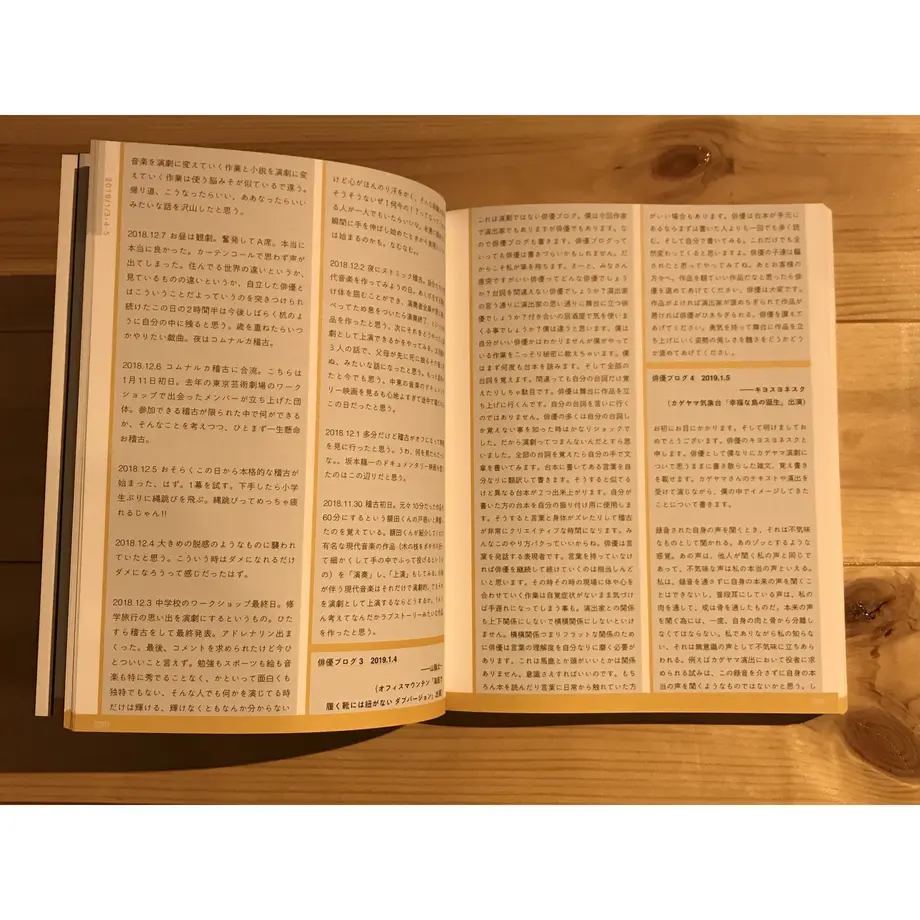 2019/1/3・4・5
音楽を演劇に変えていく作業と小説を演劇に変
えていく作業は使う脳みそが似ているで違う。
帰り道、こうなったらいい、ああなったらいい
みたいな話を沢山したと思う。
2018.12.7 お昼は観劇。奮発してA席。本当に
本当に良かった。カーテンコールで思わず声が
出てしまった。住んでる世界の違いというか、
見ているものの違いというか、自立した俳優と
はこういうことだよっていうのを突きつけられ
続けたこの日の2時間半は今後しばらく杭のよ
うに自分の中に残ると思う。歳を重ねたらいつ
かやりたい戯曲。夜はコムナルカ稽古。
2018.12.6 コムナルカ稽古に合流。こちらは
1月11日初日。去年の東京芸術劇場のワーク
ショップで出会ったメンバーが立ち上げた団
体。参加できる稽古が限られた中で何ができる
か、そんなことを考えつつ、ひとまず一生懸命
お稽古。
2018.12.5 おそらくこの日から本格的な稽古が
始まった、はず。1幕を試す。下手したら小学
生ぶりに縄跳びを飛ぶ。縄跳びってめっちゃ疲
れるじゃん!!
2018.12.4 大きめの脱感のようなものに襲われ
ていたと思う。こういう時はダメになれるだけ
ダメになろうって感じだったはず。
2018.12.3 中学校のワークショップ最終日。修
学旅行の思い出を演劇にするというもの。ひた
すら稽古をして最終発表。アドレナリン出まく
った。最後、コメントを求められたけど今ひ
とついいこと言えず。勉強もスポーツも絵も音
楽も特に秀でることなく、かといって面白くも
独特でもない、そんな人でも何かを演じてる時
だけは輝ける、輝けなくともなんか分からない
けど心がほんのり汗をかく、そんな
そうそうないぜ1何今の!?ってなって
る人が一人でもいたらいいな。
瞬間に手を伸ばし始めたときから
は始まるのかも。なむなむ。
2018.12.2 夜にストミック稽古。
代音楽を作ってみようの日。
け体を揺むことができ、演奏
ぺってため息をついたら演奏終了、
品を作ったと思う。次にそれをどうやって
劇として上演できるかをやってみる。
3人の話で、父母が先に死に娘も
ぬ、みたいな話になったと思う。もっと
たと今でも思う。中東の音楽のドキュメンタ
リー映画を見るも心地よすぎて途中で寝た
この日だったと思う。
2018.12.1 多分だけど稽古がオフになって
を見に行ったと思う。うわ、何を見たんだっけ
な。。坂本龍一のドキュメンタリー映画を
たのはこの辺りだと思う。
2018.11.30 稽古初日。元々10分だった作品を
60分にするという額田くんの戸惑いと
たのを覚えている。額田くんが紹介してくれた
有名な現代音楽の作品(木の枝をポキポキ折っ
て細かくして手の中でふって投げるという
の)を「演奏」し、「上演」もしてみる。
が伴う現代音楽はそれだけで演劇的。でもそれ
を演劇として上演するならどうするか。
ん考えてなんだかラブストーリーみたいな作品
を作ったと思う。
俳優ブログ3　2019.1.4
(オフィスマウンテン「海底で
履く靴には紐がない ダブバージョン」出演)
これは演劇ではない俳優ブログ。僕は今回作家
で演出家でもありますが俳優でもあります。な
ので俳優ブログも書きます。俳優ブログって
いっても俳優は書きづらいかもしれません。だ
からこそ私が筆を持ちます。えーと、みなさん
唐突ですがいい俳優ってどんな俳優でしょう
か?台詞を間違えない俳優でしょうか?演出家
の言う通りに演出家の思い通りに舞台に立つ俳
優でしょうか?付き合いの居酒屋で気を使いま
くる事でしょうか?僕は違うと思います。僕は
自分がいい俳優かはわかりませんが僕がやって
いる作業をこっそり秘密に教えちゃいます。僕
はまず何度も台本を読みます。そして全部の
台詞を覚えます。間違っても自分の台詞だけ覚え
たりしちゃ駄目です。俳優は舞台に立ち作品を
立ち上げに行くんです。自分の台詞を言いに行く
のではありません。俳優の多くは自分の台詞し
か覚えない事を知った時はかなりショックで
した。だから演劇ってつまんないんだとすら思
いました。全部の台詞を覚えたら自分の手で文
章を書いてみます。台本に書いてある言葉を自
分なりに翻訳して書きます。そうすると似てる
けど異なる台本が2つ出来上がります。自分が
書いた方の台本を自分の振り付け用に使用しま
す。そうすると言葉と身体がズレたりして稽古
が非常にクリエイティブな時間になります。み
んなこのやり方パクっていいからね。俳優は言
葉を発話する表現者です。言葉を持っていなけ
れば俳優を継続して続けていくのは相当しんど
いと思います。その時その時の現場に体や心を
合わせていく作業は自覚症状がないまま気づけ
ば手遅れになってしまう事も。演出家との関係
も上下関係にしないで横関係にしないといけ
ません。横横関係つまりフラットな関係のため
に俳優は言葉の理解度を自分なりに磨く必要が
あります。これは馬鹿とか頭がいいとかは関係
ありません。意識さえすればいいのです。もち
ろん本を読んだり言葉に日常から触れていた方
がいい場合もあります。俳優は台本が手元に
あるならまずは書いた人よりも一回でも多く読
む。そして自分で書いてみる。これだけでも全
然変わってくると思いますよ。俳優の子達は騙
されたと思ってやってみてね。あとお客様の
方々へ。作品を観ていい作品だなと思ったら俳
優を褒めてあげてください。俳優は大変です。
作品がよければ演出家が褒めちぎられて作品が
悪ければ俳優がけちぎられる。俳優を讃えて
あげてください。勇気を持って舞台に作品を立
ち上げにいく姿勢の美しさを醜さをどうかどう
か褒めてあげてください。
俳優ブログ4　2019.1.5
――キヨスヨネスク
(カゲヤマ気象台「幸福な島の誕生」出演)
お初にお目にかかります。そして明けましてお
めでとうございます。俳優のキヨスヨネスクと
申します。俳優として僕なりにカゲヤマ演劇に
ついて思うままに書き散らした雑文、覚え書き
を載せます。カゲヤマさんのテキストや演出を
受けて演じながら、僕の中でイメージしてきた
ことについて書きます。
録音された自身の声を聞くとき、それは不気味
なものとして聞かれる。あのゾッとするような
感覚。あの声は、他人が聞く私の声と同じであ
って、不気味な声は私の本当の声といえる。
私は、録音を通さずに自身の本来の声を聞くこ
とはできないし、普段耳にしている声は、私の
肉を通して、或は骨を通したものだ。本来の声
を聞く為には、一度、自身の肉と骨から分離し
なくてはならない。私でありながら私の知らな
い、それは無意識の声として不気味に立ちあら
われる。例えばカゲヤマ演出において役者に求
められる試みは、この録音を介さずに自身の本
当の声を聞くようなものではないかと思う。し